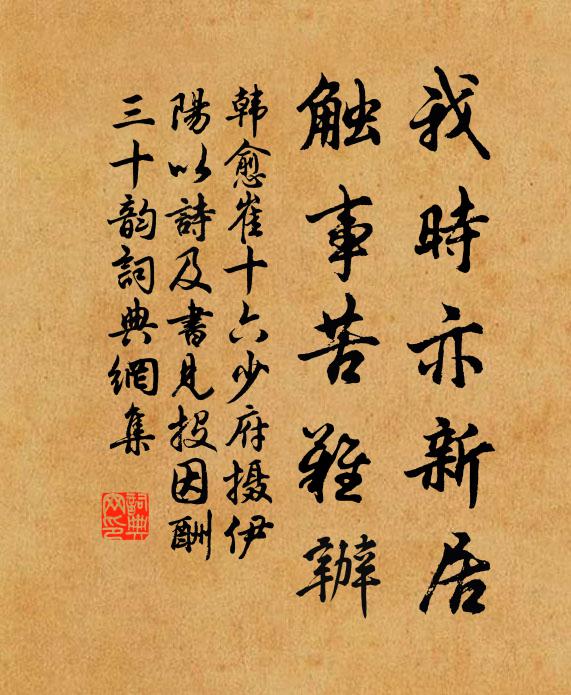 我時亦新居
触事苦難辦
韓愈崔十六少府摄伊
陽以詩及書見投因酬
三十韵詞典網集
詞典網印